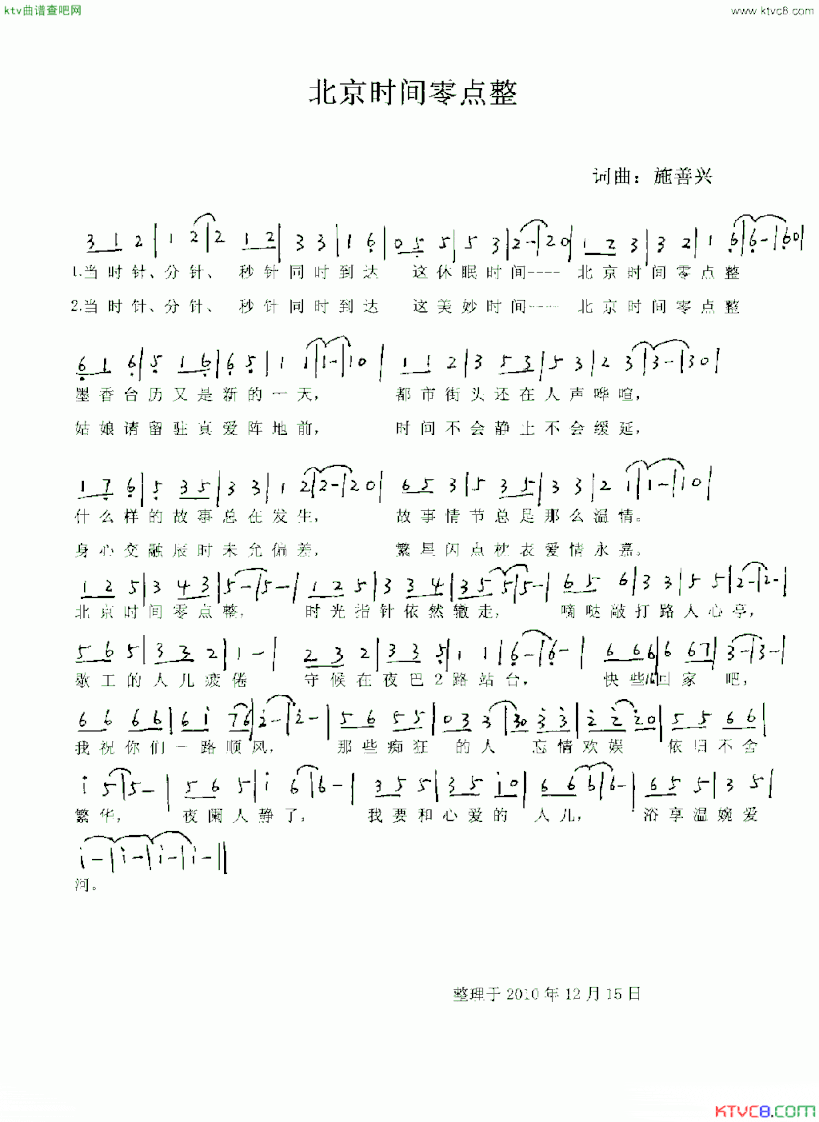 ktv曲谱查吧网
www.ktvc8.com
北京时间零点整
词曲：施善兴
3 1 2 | 1 2 | 2 1 2 | 3 3 | 1 6 | 0 5 5 | 5 3 | 2 - | 2 0 | 1 2 3 | 3 2 | 1 6 | 6 - | 6 0 |
1.当时针、分针、 秒针同时到达 这休眠时间---- 北京时间零点整
2.当时针、分针、 秒针同时到达 这美妙时间---- 北京时间零点整
6 1 6 | 5 1 6 | 6 5 | 1 1 | 1 - | 1 0 | 1 1 2 | 3 5 3 | 5 3 | 2 3 | 3 - | 3 0 |
墨香台历又是新的一天， 都市街头还在人声哗喧，
姑娘请留驻真爱阵地前， 时间不会静止不会缓延，
1 7 6 | 5 3 5 | 3 3 | 1 2 | 2 - | 2 0 | 6 5 3 | 5 3 5 | 3 3 | 2 1 | 1 - | 1 0 |
什么样的故事总在发生， 故事情节总是那么温情。
身心交融辰时未允偏差， 繁星闪点枕表爱情永嘉。
1 2 5 | 3 4 3 | 5 - | 5 - | 1 2 5 | 3 3 4 | 3 5 | 5 - | 6 5 6 | 3 3 | 5 5 | 2 - | 2 - |
北京时间零点整， 时光指针依然辙走， 嘀哒敲打路人心亭，
5 6 5 | 3 3 2 | 1 - | 2 3 2 | 3 3 5 | 1 1 | 6 - | 6 - | 6 6 6 | 6 6 7 | 3 - | 3 - |
歇工的人儿疲倦 守候在夜巴2路站台， 快些儿回家吧，
6 6 6 6 | 6 i 7 6 | 2 - | 2 - | 5 6 5 5 | 0 3 3 | 3 0 3 3 | 2 2 | 2 0 | 5 5 6 6 |
我祝你们一路顺风， 那些痴狂的人 忘情欢娱 依旧不舍
i 5 | 5 - | 5 6 5 | i 6 | 6 - | 3 5 5 | 3 5 i 0 | 6 6 6 | 6 - | 6 5 5 | 3 5 |
繁华， 夜阑人静了， 我要和心爱的人儿， 浴享温婉爱
i - | i - | i - | i - ||
河。
整理于2010年12月15日
KTVC8.COM